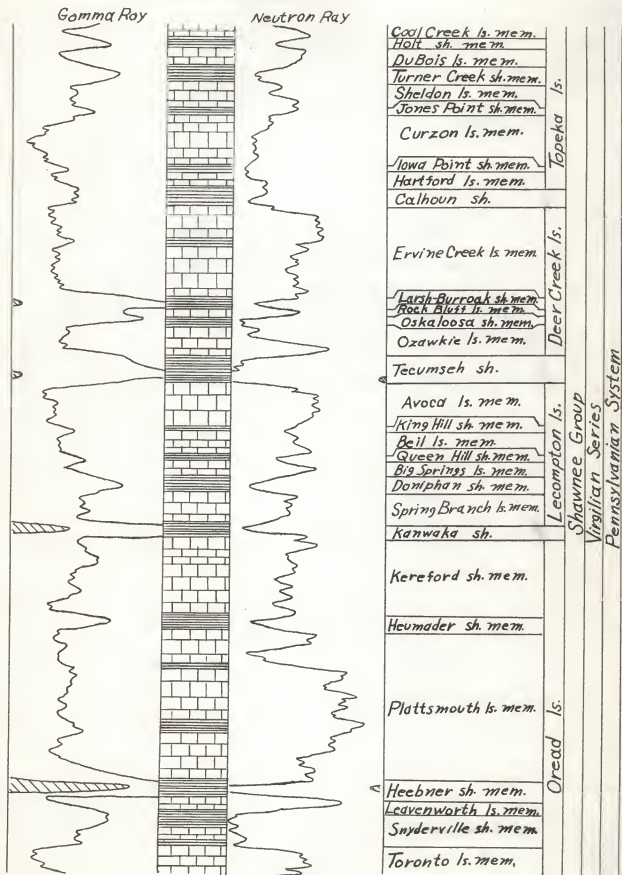 Gamma Ray
Neutron Ray
Coal Creek ls. mem.
Holt sh. mem.
DuBois ls. mem.
Turner Creek sh. mem.
Sheldon ls. mem.
Jones Point sh. mem.
Curzon ls. mem.
Iowa Point sh. mem.
Hartford ls. mem.
Calhoun sh.
Ervine Creek ls. mem.
Larsh-Burroak sh. mem.
Rock Bluff ls. mem.
Oskaloosa sh. mem.
Ozawkie ls. mem.
Tecumseh sh.
Avoca ls. mem.
King Hill sh. mem.
Beil ls. mem.
Queen Hill sh. mem.
Big Springs ls. mem.
Doniphan sh. mem.
Spring Branch ls. mem.
Kanwaka sh.
Kereford sh. mem.
Heumader sh. mem.
Plattsmouth ls. mem.
Heebner sh. mem.
Leavenworth ls. mem.
Snyderville sh. mem.
Toronto ls. mem.
Topeka ls.
Deer Creek ls.
Lecompton ls.
Oread ls.
Shawnee Group
Virgilian Series
Pennsylvanian System